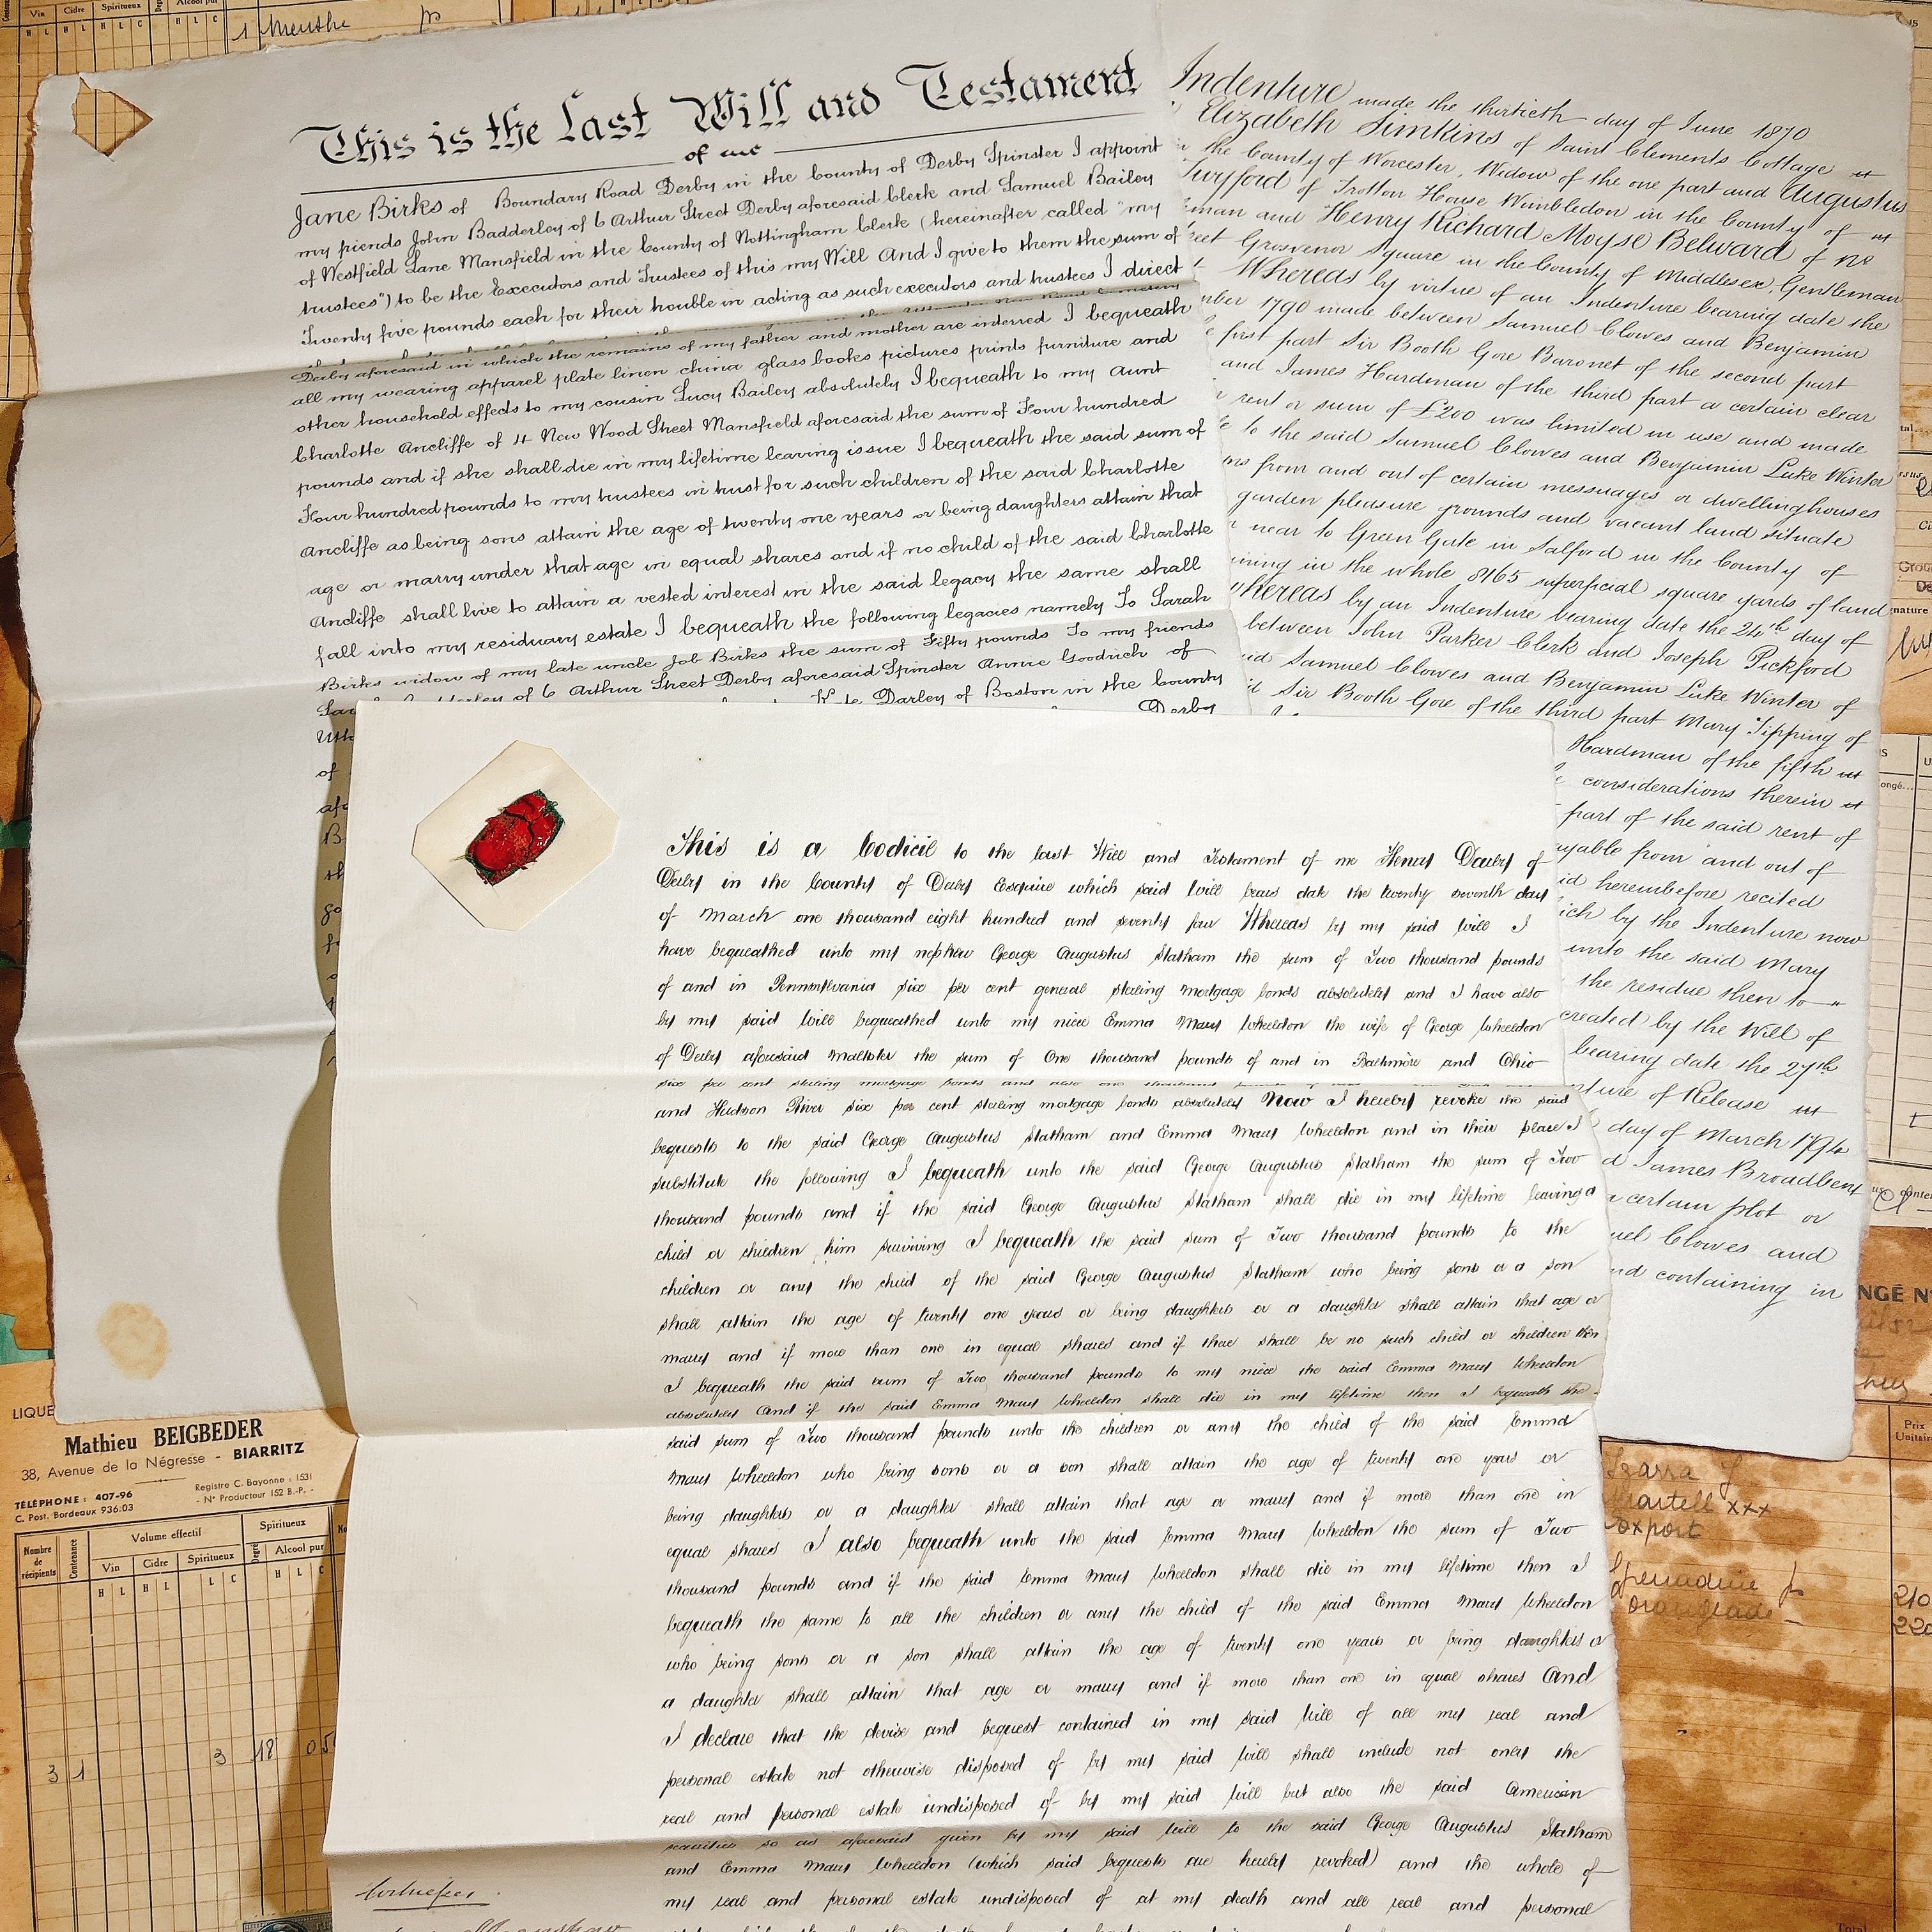 1 Menthe
This is the last Will and Testament
of me
Jane Birks of Boundary Road Derby in the County of Derby Spinster I appoint
my friends John Badderley of 6 Arthur Street Derby aforesaid Clerk and Samuel Bailey
of Westfield Lane Mansfield in the County of Nottingham Clerk (hereinafter called "my
trustees") to be the Executors and Trustees of this my Will And I give to them the sum of
Twenty five pounds each for their trouble in acting as such executors and trustees I direct
Derby aforesaid in which the remains of my father and mother are interred I bequeath
all my wearing apparel plate linen china glass books pictures prints furniture and
other household effects to my cousin Lucy Bailey absolutely I bequeath to my aunt
Charlotte Ancliffe of 4 New Wood Street Mansfield aforesaid the sum of Four hundred
pounds and if she shall die in my lifetime leaving issue I bequeath the said sum of
Four hundred pounds to my trustees in trust for such children of the said Charlotte
Ancliffe as being sons attain the age of twenty one years or being daughters attain that
age or marry under that age in equal shares and if no child of the said Charlotte
Ancliffe shall live to attain a vested interest in the said legacy the same shall
fall into my residuary estate I bequeath the following legacies namely To Sarah
Birks widow of my late uncle Job Birks the sum of Fifty pounds To my friends
of 6 Arthur Street Derby aforesaid Spinster Annie Goodrich of
Darley of Boston in the County
Derby
Indenture made the thirtieth day of June 1870
Elizabeth Simkins of Saint Clements Cottage
the County of Worcester, Widow of the one part and Augustus
Twyford of Trotton House Wimbledon in the County of
and Henry Richard Moyse Belward of No
Grosvenor Square in the County of Middlesex, Gentleman
Whereas by virtue of an Indenture bearing date the
1790 made between Samuel Clowes and Benjamin
first part Sir Booth Gore Baronet of the second part
and James Hardman of the third part a certain clear
rent or sum of £200 was limited in use and made
to the said Samuel Clowes and Benjamin Luke Winter
from and out of certain messuages or dwellinghouses
garden pleasure grounds and vacant land situate
near to Green Gate in Salford in the County of
in the whole 8465 superficial square yards of land
Whereas by an Indenture bearing date the 24th day of
between John Parker Clerk and Joseph Pickford
Samuel Clowes and Benjamin Luke Winter of
Sir Booth Gore of the third part Mary Tipping of
Hardman of the fifth
considerations therein
part of the said rent of
from and out of
hereinbefore recited
by the Indenture now
unto the said Mary
the residue then to
created by the Will of
bearing date the 27th
of Release
day of March 1794
James Broadbent
certain plot or
Clowes and
containing in
This is a Codicil to the last Will and Testament of me Henry Darby of
Derby in the County of Derby Esquire which said Will bears date the twenty seventh day
of March one thousand eight hundred and seventy four Whereas by my said Will I
have bequeathed unto my nephew George Augustus Statham the sum of Two thousand pounds
of and in Pennsylvania six per cent general sterling mortgage bonds absolutely and I have also
by my said Will bequeathed unto my niece Emma Mary Wheeldon the wife of George Wheeldon
of Derby aforesaid Maltster the sum of One thousand pounds of and in Baltimore and Ohio
six per cent sterling mortgage bonds and also one thousand
and Hudson River six per cent sterling mortgage bonds absolutely Now I hereby revoke the said
bequests to the said George Augustus Statham and Emma Mary Wheeldon and in their place I
substitute the following I bequeath unto the said George Augustus Statham the sum of Two
thousand pounds and if the said George Augustus Statham shall die in my lifetime leaving a
child or children him surviving I bequeath the said sum of Two thousand pounds to the
children or any the child of the said George Augustus Statham who being sons or a son
shall attain the age of twenty one years or being daughters or a daughter shall attain that age or
marry and if more than one in equal shares and if there shall be no such child or children then
I bequeath the said sum of Two thousand pounds to my niece the said Emma Mary Wheeldon
absolutely And if the said Emma Mary Wheeldon shall die in my lifetime then I bequeath the
said sum of Two thousand pounds unto the children or any the child of the said Emma
Mary Wheeldon who being sons or a son shall attain the age of twenty one years or
being daughters or a daughter shall attain that age or marry and if more than one in
equal shares I also bequeath unto the said Emma Mary Wheeldon the sum of Two
thousand pounds and if the said Emma Mary Wheeldon shall die in my lifetime then I
bequeath the same to all the children or any the child of the said Emma Mary Wheeldon
who being sons or a son shall attain the age of twenty one years or being daughters or
a daughter shall attain that age or marry and if more than one in equal shares And
I declare that the devise and bequest contained in my said Will of all my real and
personal estate not otherwise disposed of by my said Will shall include not only the
real and personal estate undisposed of by my said Will but also the said American
securities so as aforesaid given by my said Will to the said George Augustus Statham
and Emma Mary Wheeldon (which said bequests are hereby revoked) and the whole of
my real and personal estate undisposed of at my death and all real and personal
Witnesses
Mathieu BEIGBEDER
38, Avenue de la Négresse - BIARRITZ
TÉLÉPHONE : 407-96
C. Post. Bordeaux 936.03
Registre C. Bayonne : 1531
- N° Producteur 152 B.-P. -
Nombre de récipients
Contenance
Volume effectif
Spiritueux
Vin Cidre Spiritueux Degré Alcool pur
H L H L L C H L C
3 1 3 18
Izarra
Martell xxx
export
Grenadine
orangeade
Prix
Unitaire
210